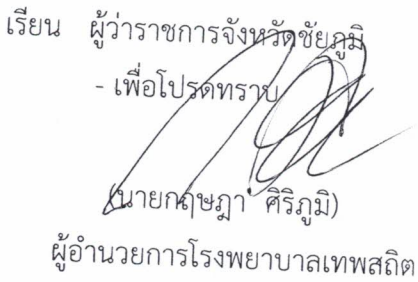 เรียน ผู้ว่าราชการจังหวัดชัยภูมิ
- เพื่อโปรดทราบ
(นายกฤษฎา ศิริภูมิ)
ผู้อำนวยการโรงพยาบาลเทพสถิต